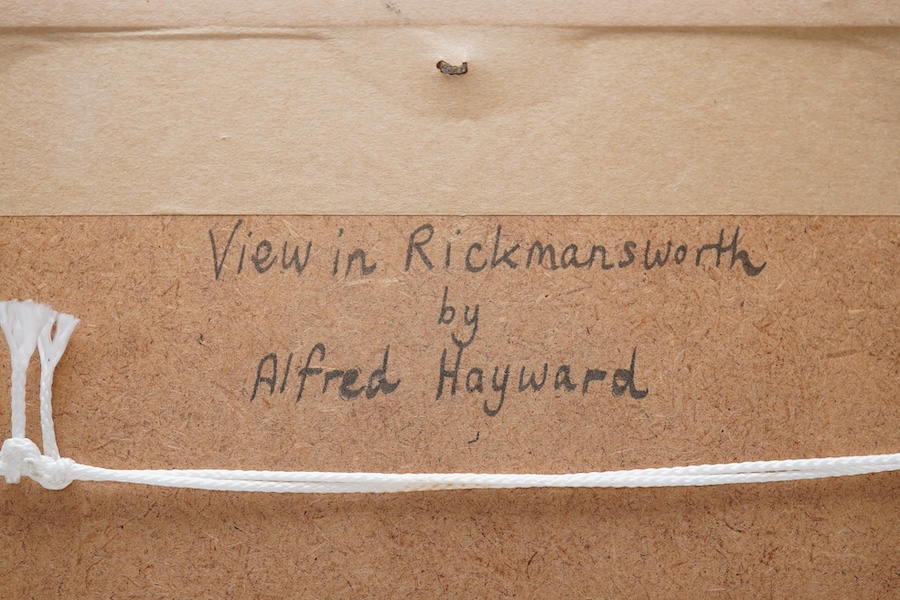 View in Rickmansworth
by
Alfred Hayward